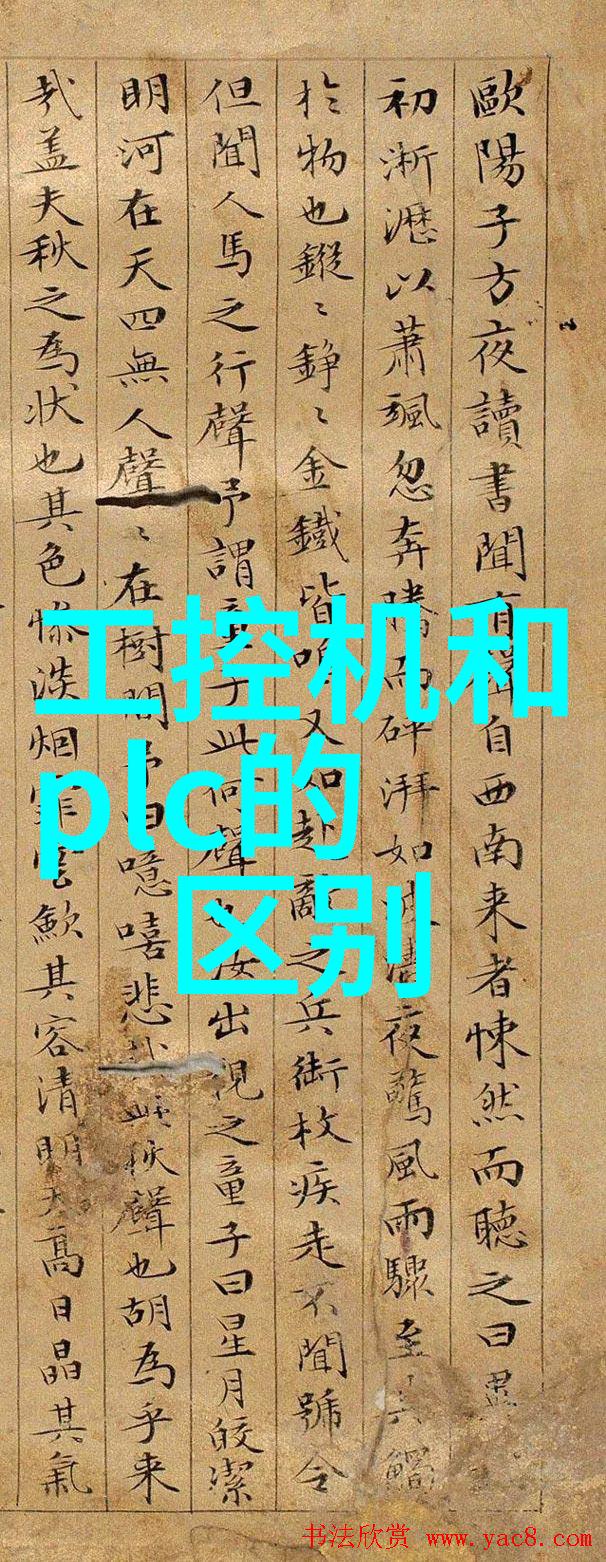 歐陽子方夜讀書聞有聲自西南来者悚然而聽之曰異
初淅瀝以蕭颯忽奔騰而砰湃如波濤夜驚風雨驟至其觸
扵物也鏦〻錚〻金鐵皆鳴又如赴敵之兵銜枚疾走不聞號令
但聞人馬之行聲予謂童子此何聲也汝出視之童子曰星月皎潔
明河在天四無人聲〻在樹間予曰噫嘻悲哉此秋聲也胡為乎来
哉盖夫秋之為状也其色惨淡烟霏雲歛其容清明天高日晶其氣
工控机和
plc的
区别
书法欣赏 www.yac8.com